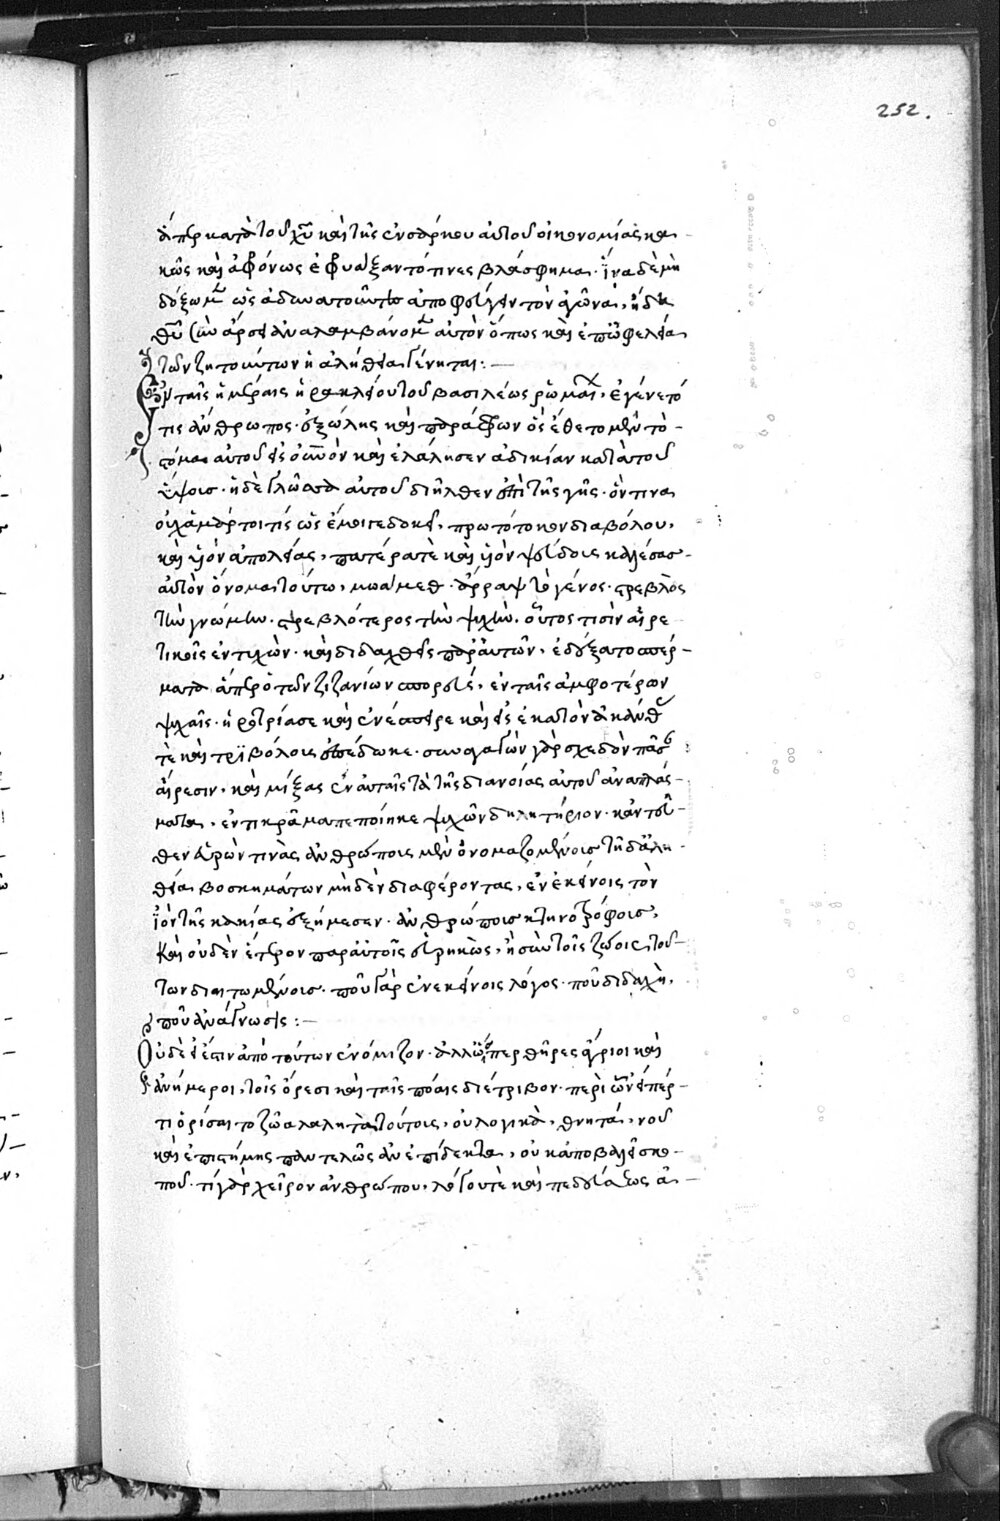 252.
ἅπερ κατὰ τοῦ χῡ καὶ τῆς ἐνσάρκου αὐτοῦ οἰκονομίας κα-
κῶς καὶ ἀφρόνως ἐφρυάξαντό τινες βλάσφημα. ἵνα δὲ μὴ
δόξωμεν ὡς ἀδυνατοῦντες ἀποφεύγειν τὸν ἀγῶνα, ἤδη
θῡ σὺν ἄρσει ἀναλαμβάνομεν αὐτὸν ὅπως καὶ ἐπωφελεία
τῶν ζητούντων ἡ ἀλήθεια γένηται:—
Ἐν ταῖς ἡμέραις ἡρακλείου τοῦ βασιλέως ῥωμαί ἐγένετό
τις ἄνθρωπος ἐξώλης καὶ παράφρων ὃς ἔθετο μὲν τὸ
στόμα αὐτοῦ εἰς οὐνὸν καὶ ἐλάλησεν ἀδικίαν κατὰ τοῦ
ὕψους. ἡ δὲ γλῶσσα αὐτοῦ διῆλθεν ἐπὶ τῆς γῆς. ὅν τινα
οὐχ ἁμάρτοι τίς ὡς ἔμοιγε δοκεῖ, πρωτότοκον διαβόλου,
καὶ υἱὸν ἀπωλείας, πατέρα τὲ καὶ υἱὸν ψεύδους καλέσας
αὐτὸν ὄνομα τούτω, μωάμεθ. ἄρραψ τὸ γένος. στρεβλὸς
τὴν γνώμην. στρεβλότερος τὴν ψυχήν. οὗτος τισὶν αἱρε
τικοῖς ἐντυχὼν. καὶ διδαχθεὶς παρ' αὐτῶν, ἐδέξατο σπέρ-
ματα ἅπερ ὁ τῶν ζιζανίων σπορεύς, ἐν ταῖς ἀμφοτέρων
ψυχαῖς. ἠροτρίασε καὶ ἐνέσπειρε καὶ εἰς ἑκατὸν ἀκάνθας
τὲ καὶ τριβόλους ἀπέδωκε. συναγαγὼν γὰρ σχεδὸν πᾶσαν
αἵρεσιν. καὶ μίξας ἐν αὐταῖς τὰ τῆς διανοίας αὐτοῦ ἀναπλάς-
ματα, ἕν τι κρᾶμα πεποίηκε ψυχῶν δηλητήριον. κἀντεῦ-
θεν εὑρών τινὰς ἀνθρώποις μὲν ὀνομαζομένοις τῇ δ' ἀλη-
θεία βοσκημάτων μηδὲν διαφέροντας, ἐν ἐκείνοις τὸν
ἰὸν τῆς κακίας ἐξήμεσεν. ἀνθρώποις κτηνοτρόφοις,
Καὶ οὐδὲν ἕτερον παρ' αὐτοῖς εὑρηκὼς, ἢ σὺν τοῖς ζώοις τού-
των διαιτωμένοις. ποῦ γὰρ ἐν ἐκείνοις λόγος. ποῦ διδαχὴ,
ποῦ ἀνάγνωσις:—
Οὐδέ τι ἀπὸ τούτων ἐνόμιζον. ἀλλ' ὥσπερ θῆρες ἄγριοι καὶ
ἀνήμεροι, τοῖς ὄρεσι καὶ ταῖς πόαις διέτριβον. περὶ ὧν εἴπέρ
τι ὁρίσαιτο ζῶα λαλητὰ τούτοις, οὐ λογικὰ, θνητά, νοῦ
καὶ ἐπιστήμης παντελῶς ἀνεπίδεκτα, οὐκ ἀποβαλεῖ σκο-
ποῦ. τί γὰρ χεῖρον ἀνθρώπου, λόγου τὲ καὶ παιδείας ἀ-